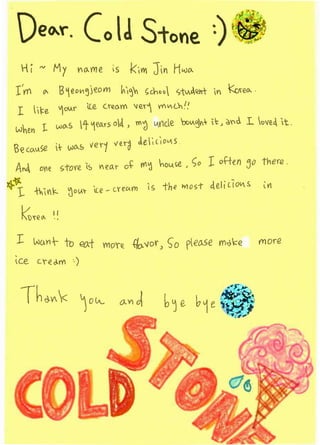 Dear. Cold Stone :)
Hi ~ My name is Kim Jin Hwa
I'm a Byeongjeom high school student in Korea.
I like your ice cream very much!!
When I was 14 years old, my uncle bought it, and I loved it.
Because it was very very delicious.
And one store is near of my house, So I often go there.
I think your ice-cream is the most delicious in
Korea !!
I want to eat more flavor, So please make more
ice cream :)
Thank you and bye bye
COLD STONE